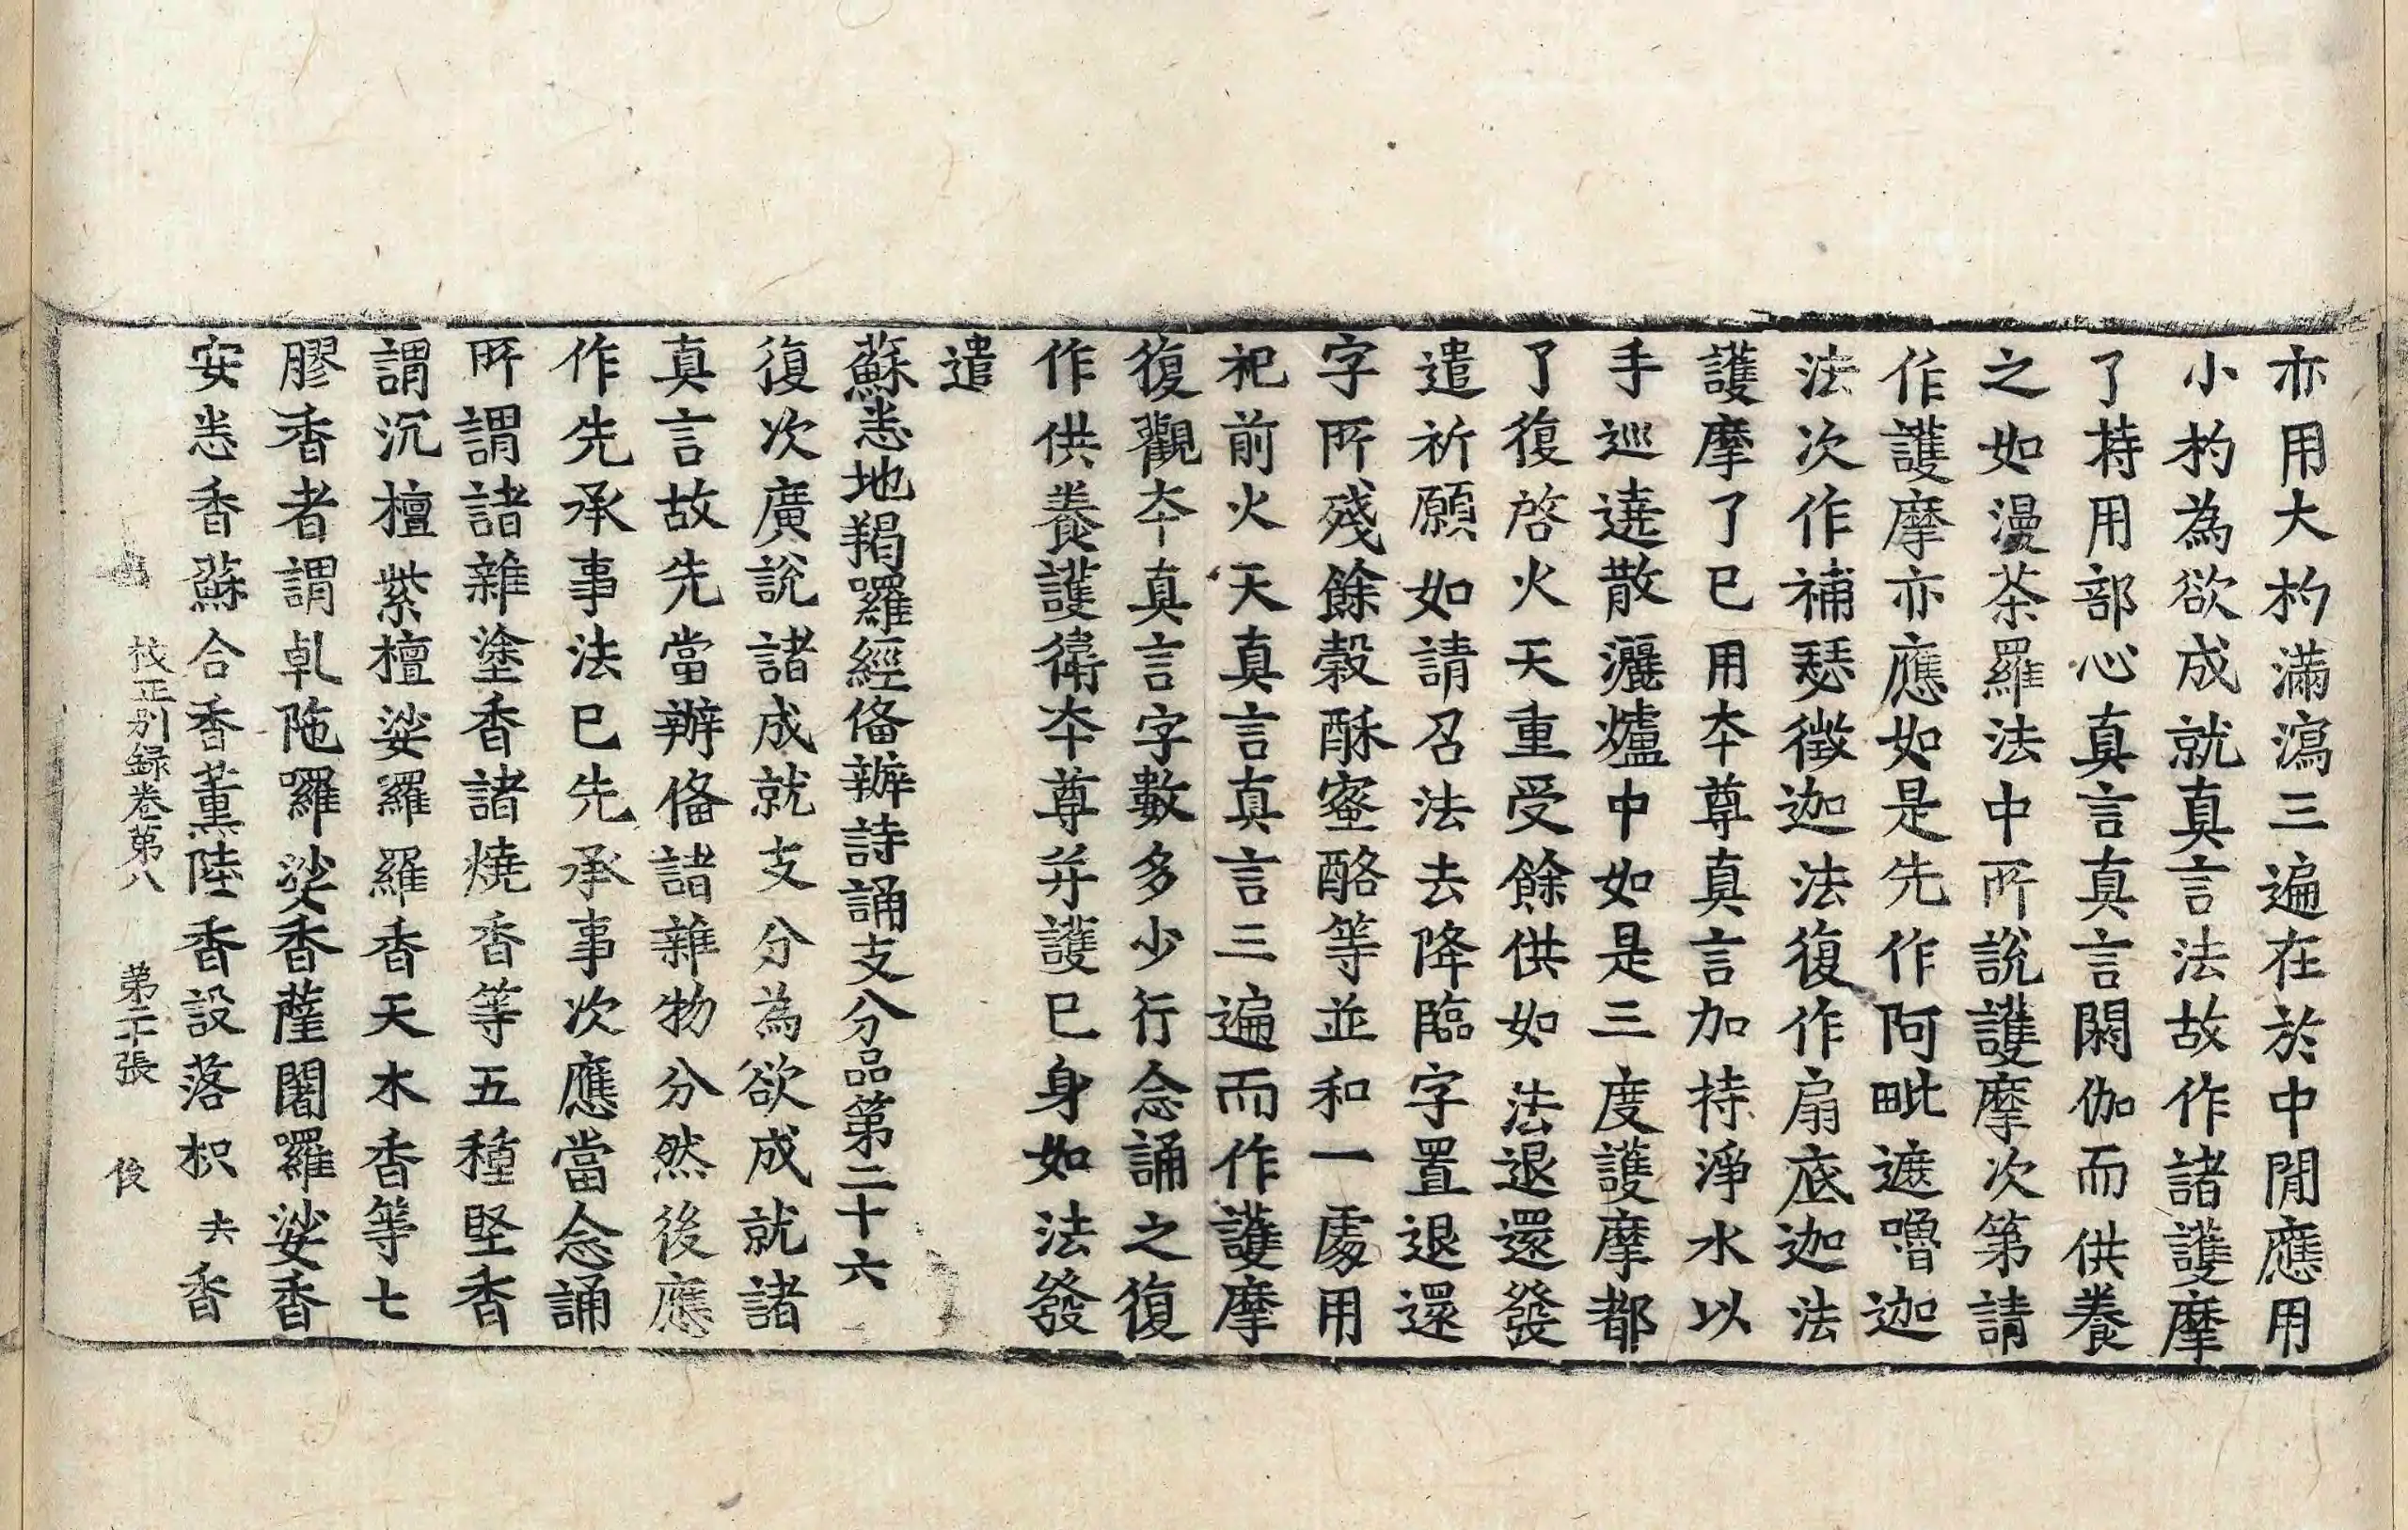 亦用大杓滿瀉三遍在於中閒應用
小杓為欲成就真言法故作諸護摩
了持用部心真言真言閼伽而供養
之如漫茶羅法中所說護摩次第請
作護摩亦應如是先作阿毗遮嚕迦
法次作補瑟徵迦法復作扇底迦法
護摩了已用本尊真言加持淨水以
手巡遶散灑爐中如是三度護摩都
了復啓火天重受餘供如法退還發
遣祈願如請召法去降臨字置退還
字所殘餘穀酥蜜酪等並和一處用
祀前火天真言真言三遍而作護摩
復觀本真言字數多少行念誦之復
作供養護衛本尊并護已身如法發
遣
蘇悉地羯囉經俻辦詩誦支分品第二十六
復次廣說諸成就支分為欲成就諸
真言故先當辦俻諸雜物分然後應
作先承事法已先承事次應當念誦
所謂諸雜塗香諸燒香等五種堅香
謂沉檀紫檀娑羅羅香天木香等七
膠香者謂乹陁囉娑香薩闍羅娑香
安悉香蘇合香薰陸香設落枳 夫香
挍正別録卷第八 第二十張 俊